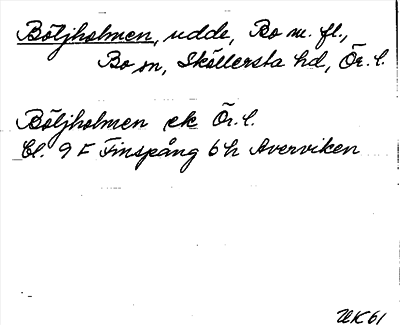 Böljholmen, udde, Bo m. fl.,
Bo sn, Sköllersta hd, Ör. l.
Böljholmen ek Ör. l.
Bl. 9 F Finspång 6 h Averviken
UK 61